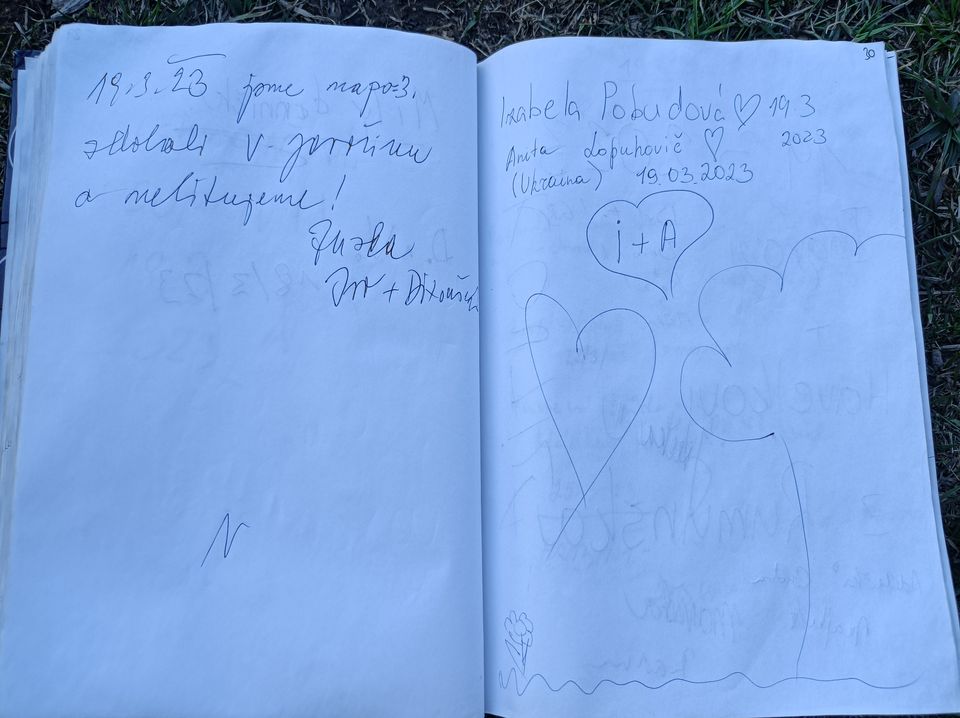 19.3.23 jsme napo3.
zdolali v
a nelitujeme!
Zuzka
Jiří +
N
30
Izabela Pobudová ♡ 19.3
2023
Aneta Lopuhovič ♡
(Ukraina) 19.03.2023
i + A